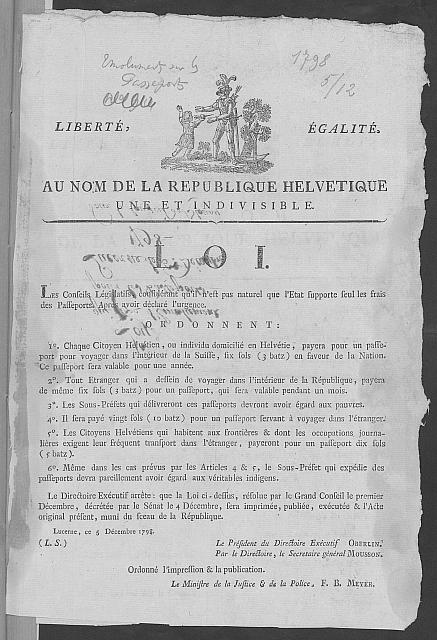 Emolument sur les
Passeports
1798
5/12
LIBERTÉ, ÉGALITÉ.
AU NOM DE LA REPUBLIQUE HELVETIQUE
UNE ET INDIVISIBLE.
LOI.
Les Conseils Législatifs, considérant qu'il n'est pas naturel que l'Etat supporte seul les frais
des Passeports. Après avoir déclaré l'urgence.
ORDONNENT:
1º. Chaque Citoyen Helvétien, ou individu domicilié en Helvétie, payera pour un passe-
port pour voyager dans l'intérieur de la Suisse, six sols (3 batz) en faveur de la Nation.
Ce passeport sera valable pour une année.
2º. Tout Etranger qui a dessein de voyager dans l'intérieur de la République, payera
de même six sols (3 batz) pour un passeport, qui sera valable pendant un mois.
3º. Les Sous-Préfets qui délivreront ces passeports devront avoir égard aux pauvres.
4º. Il sera payé vingt sols (10 batz) pour un passeport servant à voyager dans l'étranger.
5º. Les Citoyens Helvétiens qui habitent aux frontières & dont les occupations journa-
lières exigent leur fréquent transport dans l'étranger, payeront pour un passeport dix sols
(5 batz).
6º. Même dans les cas prévus par les Articles 4 & 5, le Sous-Préfet qui expédie des
passeports devra pareillement avoir égard aux véritables indigens.
Le Directoire Exécutif arrête: que la Loi ci-dessus, résolue par le Grand Conseil le premier
Décembre, décrétée par le Sénat le 4 Décembre, sera imprimée, publiée, exécutée & l'Acte
original présent, muni du sceau de la République.
Lucerne, ce 5 Décembre 1798.
(L. S.) Le Président du Directoire Exécutif OBERLIN.
Par le Directoire, le Secrétaire général MOUSSON.
Ordonné l'impression & la publication.
Le Ministre de la Justice & de la Police, F. B. MEYER.